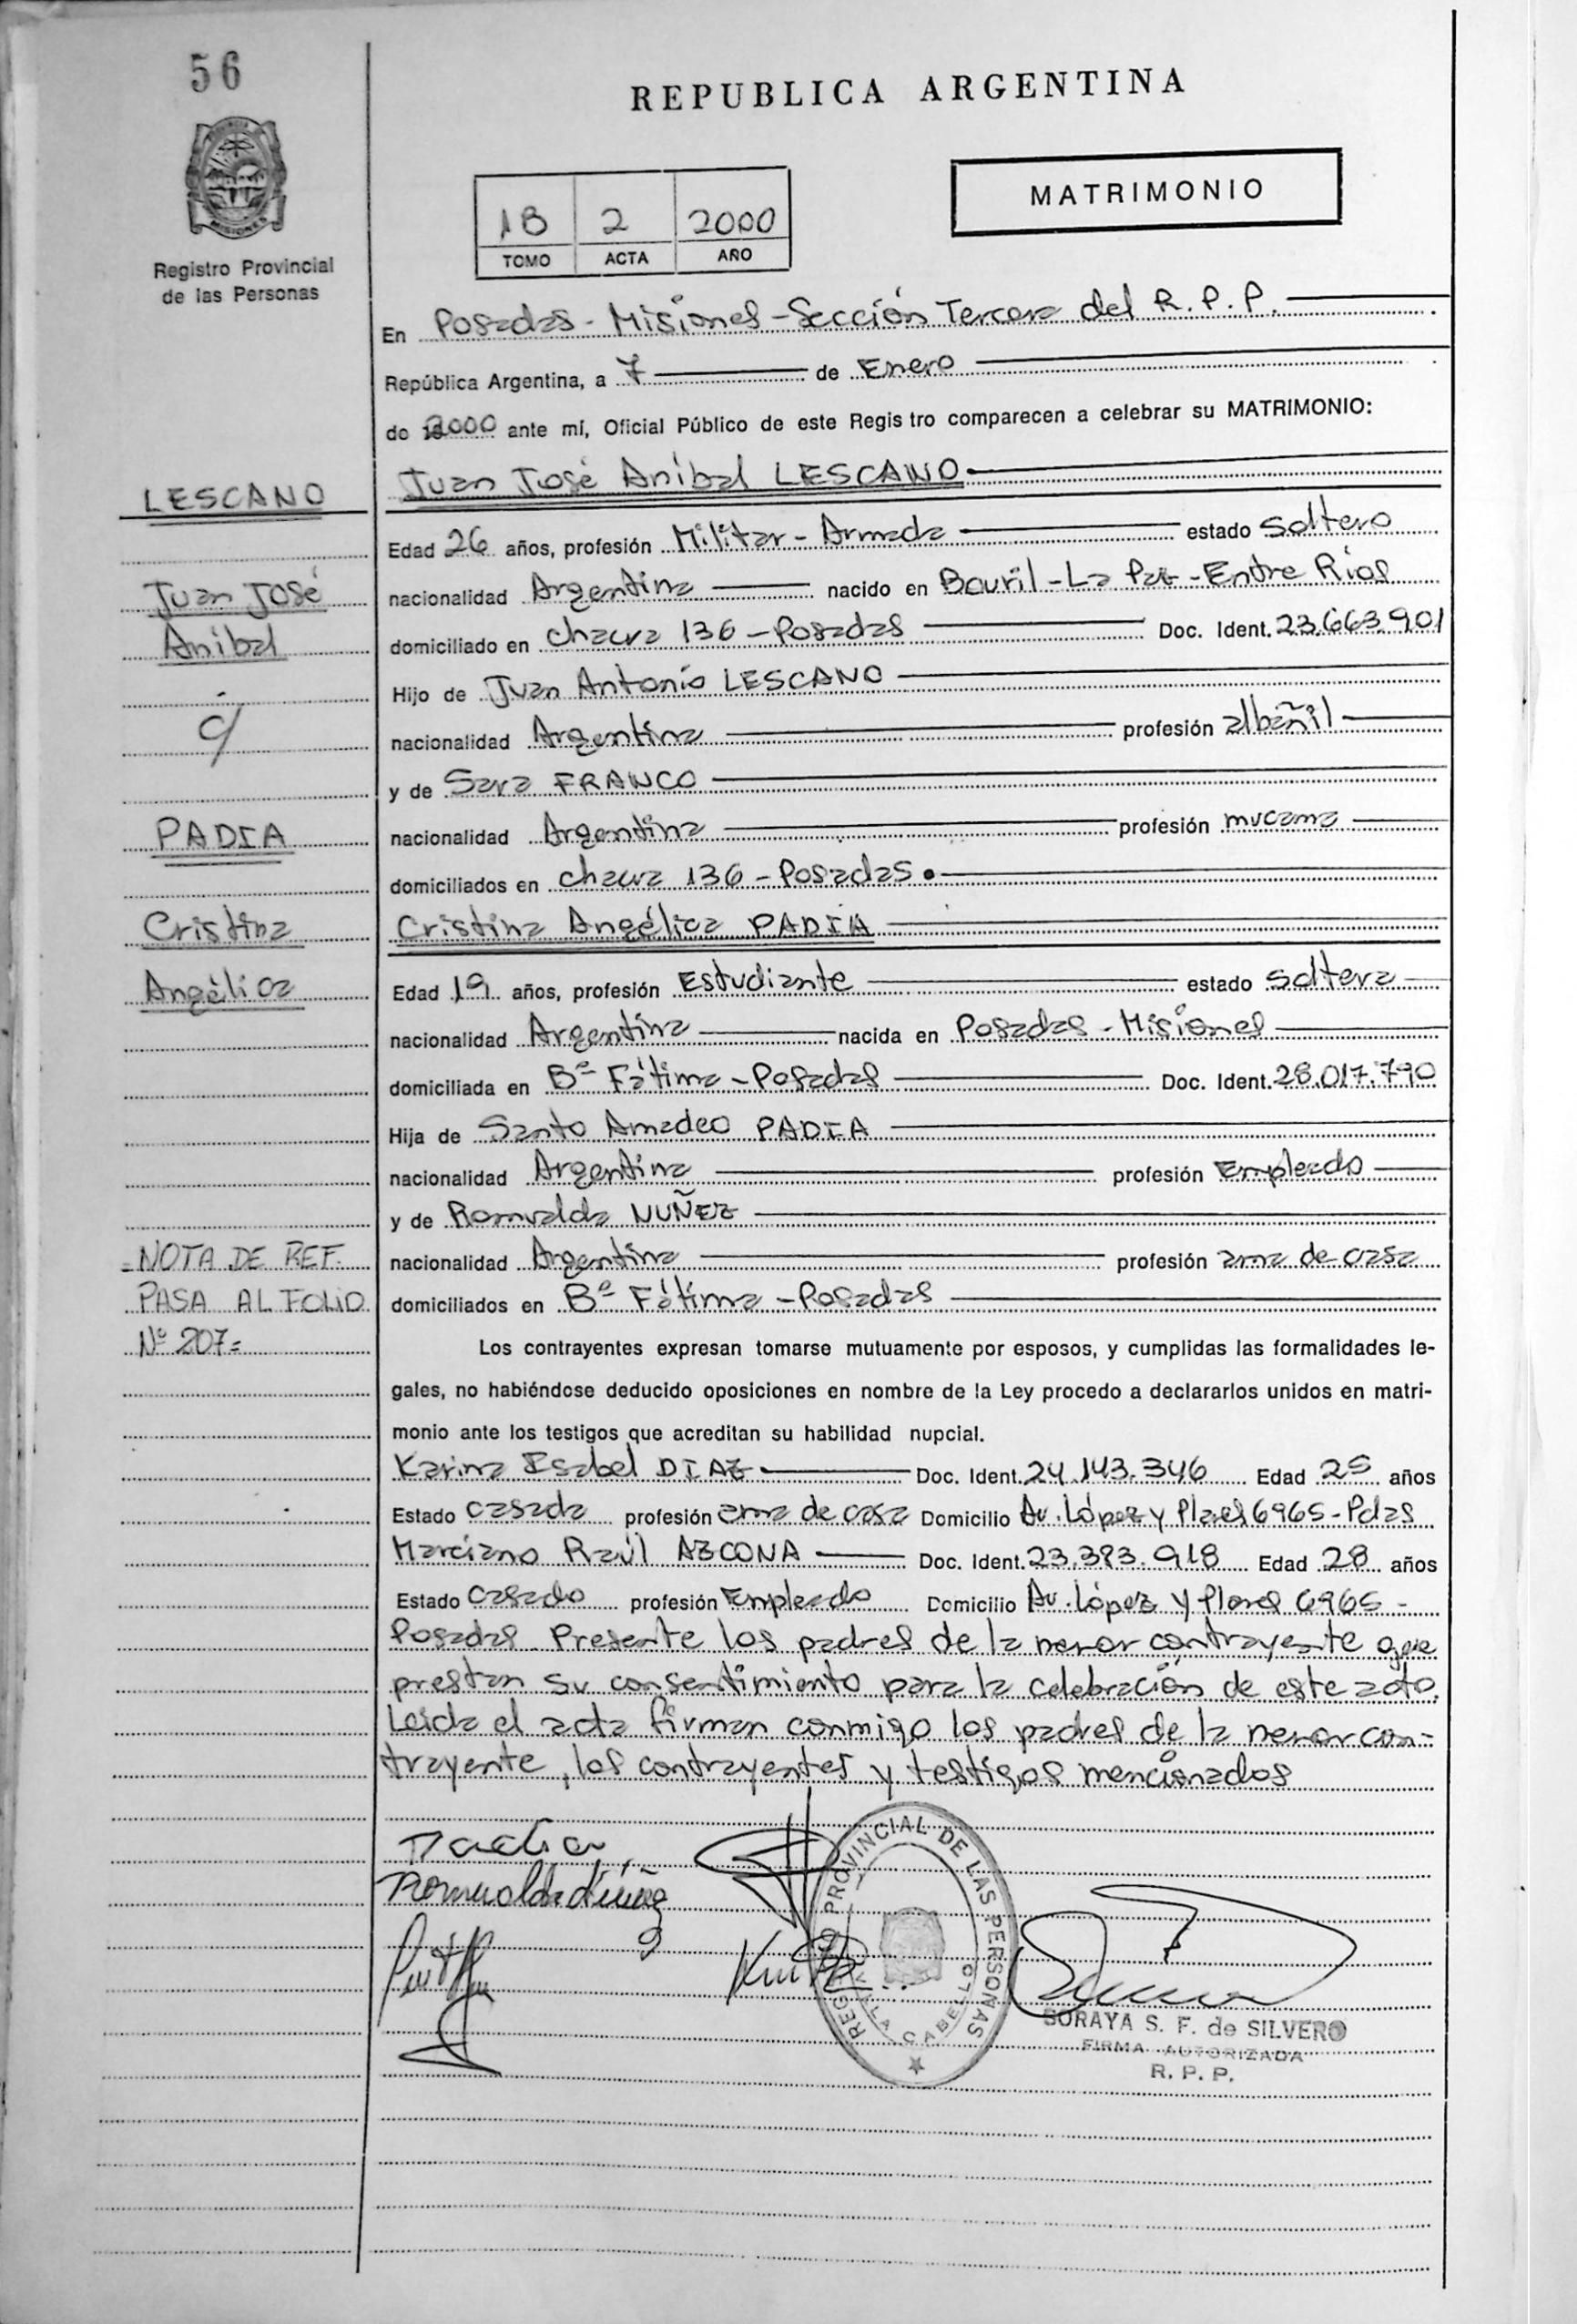 56
REPUBLICA ARGENTINA
MATRIMONIO
1B 2 2000
TOMO ACTA AÑO
Registro Provincial
de las Personas
En Posadas - Misiones - Sección Tercera del R. P. P.
República Argentina, a 7 de Enero
de 2000 ante mí, Oficial Público de este Regis tro comparecen a celebrar su MATRIMONIO:
LESCANO
Juan José
Anibal
c/
PADIA
Cristina
Angélica
Juan José Aníbal LESCANO
Edad 26 años, profesión Militar - Armada estado soltero
nacionalidad Argentina nacido en Bovril - La Paz - Entre Ríos
domiciliado en chacra 136 - Posadas Doc. Ident. 23.663.901
Hijo de Juan Antonio LESCANO
nacionalidad Argentina profesión albañil
y de Sara FRANCO
nacionalidad Argentina profesión mucama
domiciliados en chacra 136 - Posadas
Cristina Angélica PADIA
Edad 19 años, profesión Estudiante estado soltera
nacionalidad Argentina nacida en Posadas - Misiones
domiciliada en Bº Fátima - Posadas Doc. Ident. 28.017.790
Hija de Santo Amadeo PADIA
nacionalidad Argentina profesión Empleado
y de Romualda NUÑEZ
nacionalidad Argentina profesión ama de casa
domiciliados en Bº Fátima - Posadas
NOTA DE REF.
PASA AL FOLIO
Nº 207=
Los contrayentes expresan tomarse mutuamente por esposos, y cumplidas las formalidades le-
gales, no habiéndose deducido oposiciones en nombre de la Ley procedo a declararlos unidos en matri-
monio ante los testigos que acreditan su habilidad nupcial.
Karina Isabel DIAZ Doc. Ident. 24.143.346 Edad 25 años
Estado casada profesión ama de casa Domicilio Av. López y Planes 6965 - Pdas
Marciano Raúl AZCONA Doc. Ident. 23.383.918 Edad 28 años
Estado casado profesión Empleado Domicilio Av. López y Planes 6965 -
Posadas. Presente los padres de la menor contrayente que
prestan su consentimiento para la celebración de este acto.
Leida el acta firman conmigo los padres de la menor con-
trayente, los contrayentes y testigos mencionados
Padia
Romualda Nuñez
REGISTRO PROVINCIAL DE LAS PERSONAS
SORAYA S. F. de SILVERO
FIRMA AUTORIZADA
R. P. P.